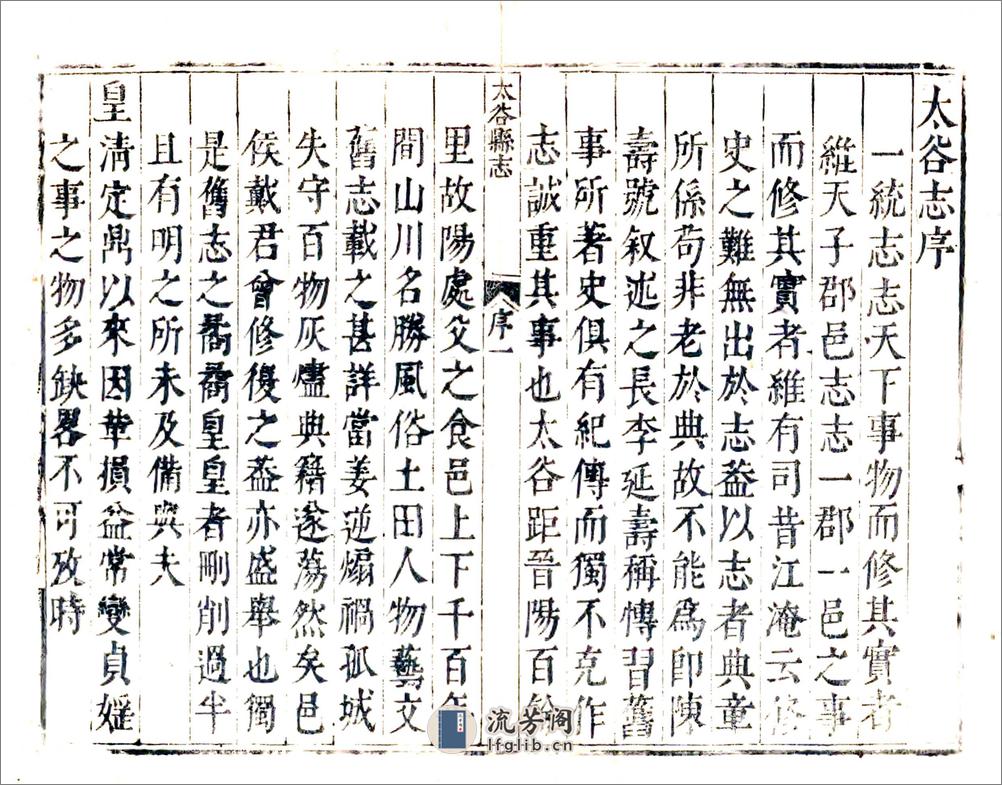 太谷志序
一統志志天下事物而修其實者
維天子郡邑志志一郡一邑之事
而修其實者維有司昔江淹云修
史之難無出於志葢以志者典章
所係苟非老於典故不能爲卽陳
壽號叙述之長李延壽稱慱習舊
事所著史俱有紀傳而獨不克作
志誠重其事也太谷距晉陽百餘
太谷縣志
序一
里故陽處父之食邑上下千百年
間山川名勝風俗土田人物藝文
舊志載之甚詳當姜逆煽禍孤城
失守百物灰燼典籍遂蕩然矣邑
侯戴君曾修復之葢亦盛舉也獨
是舊志之喬喬皇皇者刪削過半
且有明之所未及備與夫
皇淸定鼎以來因革損益常變貞婬
之事之物多缺畧不可攷時
流芳阁
lfglib.cn